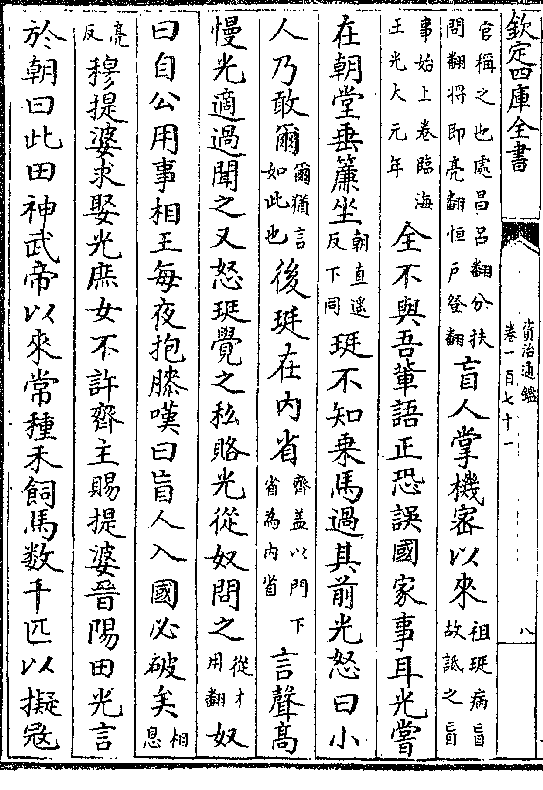 欽定四庫全書
資治通鑑
卷一百七十一
八
官稱之也處昌呂翻分扶問翻將即亮翻恒戶登翻盲人掌機密以來祖珽病盲故詆之盲
事始上卷臨海王光大元年全不與吾輩語正恐誤國家事耳光嘗
在朝堂垂簾坐朝直遥反下同珽不知乗馬過其前光怒曰小
人乃敢爾爾猶言如此也後珽在内省齊盖以門下省為内省言聲髙
慢光適過聞之又怒珽覺之私賂光從奴問之從才用翻奴
曰自公用事相王每夜抱膝嘆曰盲人入國必破矣相息
亮反穆提婆求娶光庶女不許齊主賜提婆晉陽田光言
於朝曰此田神武帝以來常種禾飼馬數千匹以擬冦